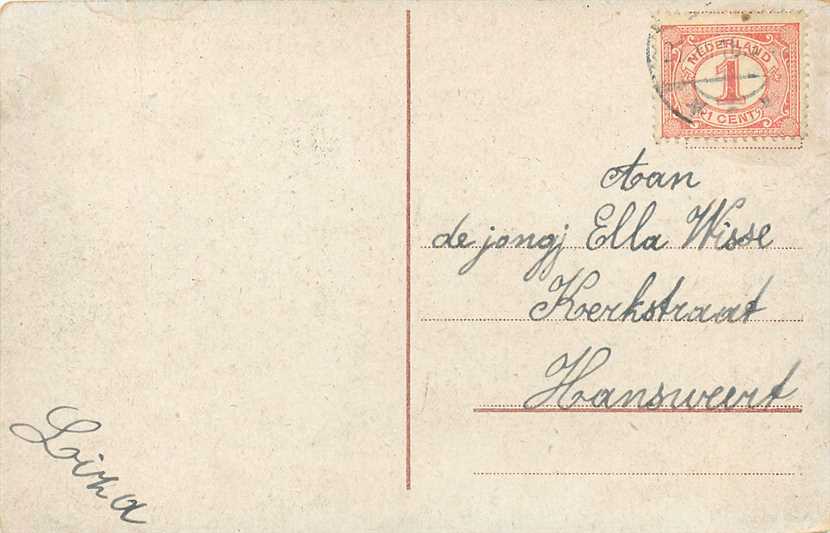 NEDERLAND
1
1 CENT
Aan
de jongj Ella Wisse
Kerkstraat
Hansweert